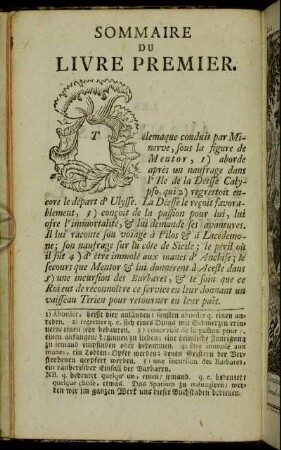 SOMMAIRE
DU
LIVRE PREMIER.
Telemaque conduit par Mi-
nerve, sous la figure de
Mentor, 1) aborde
après un naufrage dans
l'Ile de la Déesse Caly-
pso, qui 2) regrettoit en-
core le départ d'Ulysse. La Déesse le reçoit favora-
blement, 3) conçoit de la passion pour lui, lui
ofre l'immortalité, & lui demande ses avantures.
Il lui raconte son voiage à Pilos & à Lacedemo-
ne; son naufrage sur la côte de Sicile; le péril où
il fût 4) d'être immolé aux manes d'Anchise; le
secours que Mentor & lui donnerent à Aceste dans
5) une incursion des Barbares, & le soin que ce
Roi eut de réconnoître ce service en leur donnant un
vaisseau Tirien pour retourner en leur païs.
1) Aborder, heißt hier anländen; sonsten aborder q. einen an-
reden. 2) regretter q. c. sich eines Dings mit Schmerzen erin-
nern
3) concevoir de la passion pour q.
einen anfangen/ beginnen zu lieben; eine heimliche Zuneigung
zu jemand empfinden oder bekommen. 4) être immolé aux
manes, ein Todten-Opfer werden; denen Geistern der Ver-
storbenen geopfert werden. 5) une incursion des Barbares,
ein räuberischer Einfall der Barbaren.
NB. q. bedeutet quelqu'un, einen/ jemand. q. c. bedeutet/
quelque chose, etwas. Das Spatium zu menagiren/ wer-
den wir im ganzen Werk uns dieser Buchstaben bedienen.